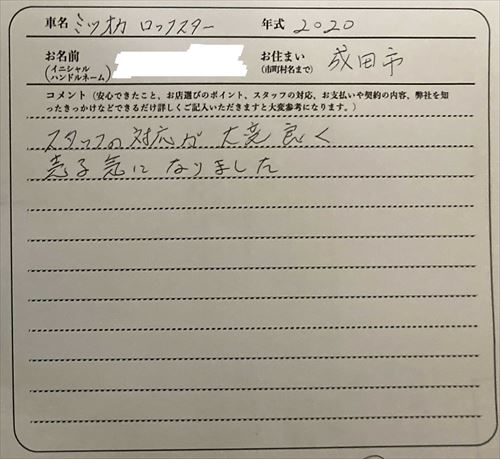 車名 ミツオカ ロックスター 年式 2020
お名前 お住まい 成田市
(イニシャル (市町村名まで)
ハンドルネーム)
コメント(安心できたこと、お店選びのポイント、スタッフの対応、お支払いや契約の内容、弊社を知
ったきっかけなどできるだけ詳しくご記入いただきますと大変参考になります。)
スタッフの対応が 大変 良く
売る気に なりました